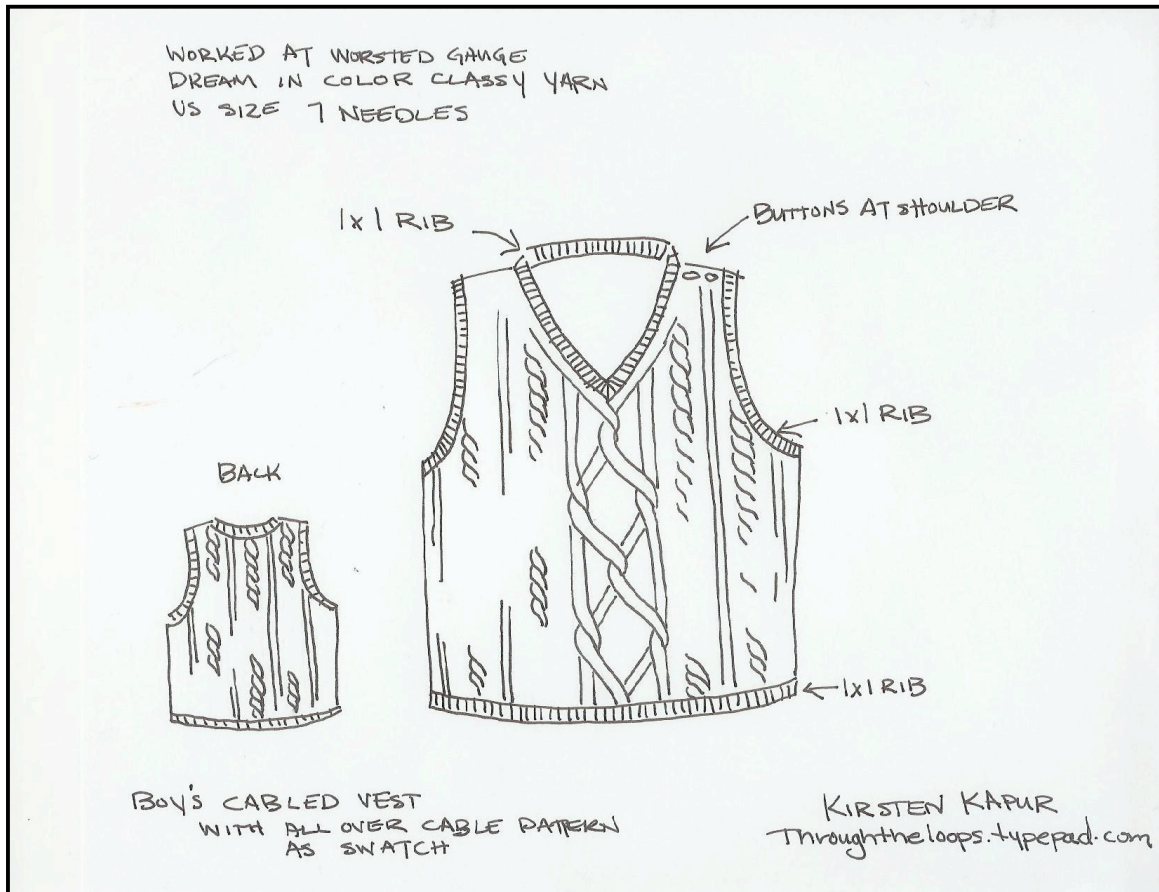 WORKED AT WORSTED GAUGE
DREAM IN COLOR CLASSY YARN
US SIZE 7 NEEDLES
1x1 RIB
BUTTONS AT SHOULDER
1x1 RIB
BACK
1x1 RIB
BOY'S CABLED VEST
WITH ALL OVER CABLE PATTERN
AS SWATCH
KIRSTEN KAPUR
Throughtheloops.typepad.com